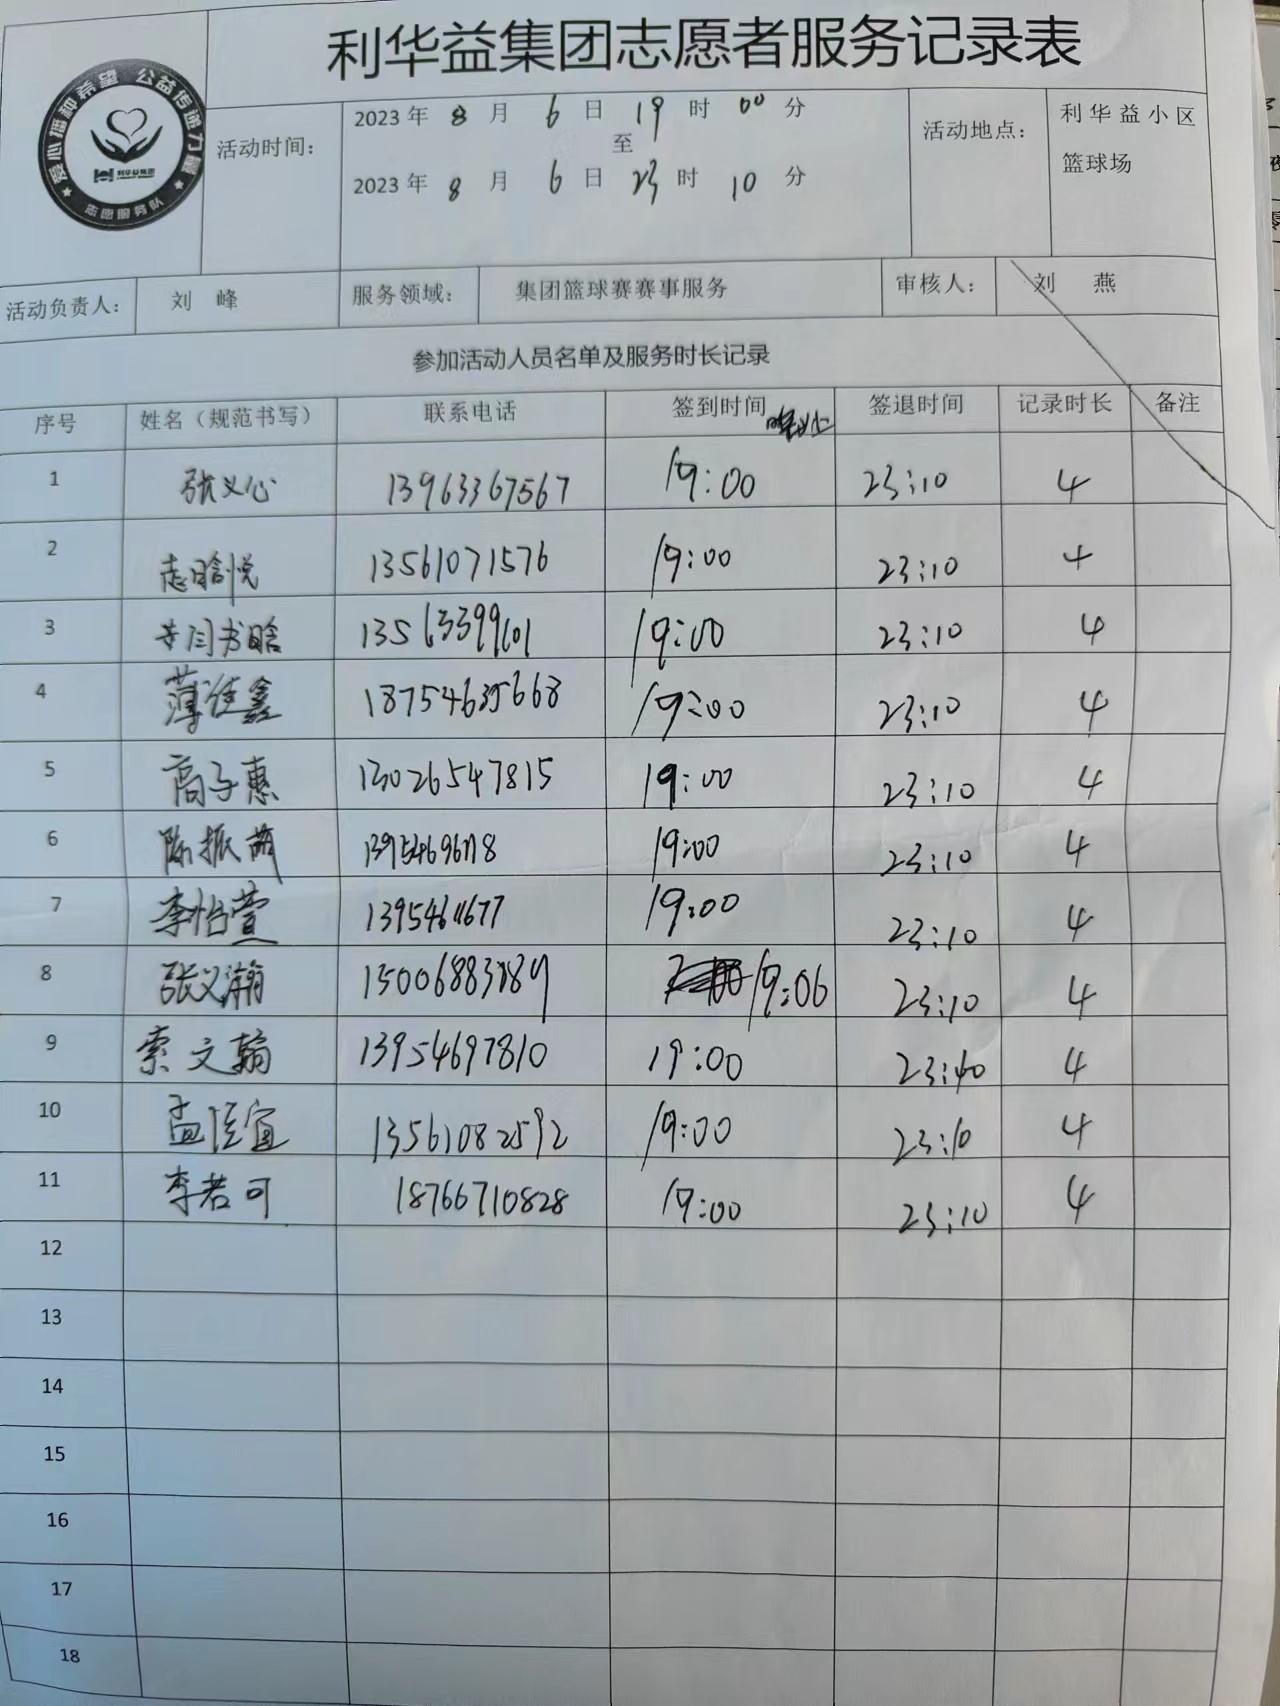 利华益集团志愿者服务记录表
爱心播种希望 公益传递力量
利华益集团
志愿服务队
活动时间：
2023 年 8 月 6 日 19 时 00 分
至
2023 年 8 月 6 日 23 时 10 分
活动地点：
利华益小区
篮球场
活动负责人： 刘 峰 服务领域： 集团篮球赛赛事服务 审核人： 刘 燕
参加活动人员名单及服务时长记录
序号 姓名（规范书写） 联系电话 签到时间 签退时间 记录时长 备注
1 张义心 13963367567 19:00 23:10 4
2 13561071576 19:00 23:10 4
3 19:00 23:10 4
4 薄佳鑫 19:00 23:10 4
5 高子惠 13026547815 19:00 23:10 4
6 陈振萌 19:00 23:10 4
7 李怡萱 19:00 23:10 4
8 张义瀚 19:06 23:10 4
9 索文翰 13954697810 19:00 4
10 孟佳宜 13561082592 19:00 23:10 4
11 李若可 18766710828 19:00 23:10 4
12
13
14
15
16
17
18